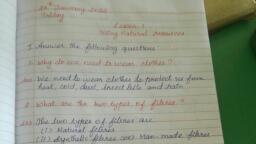 Friday
Lesson 1
Using Natural Resources
I. Answer the following questions
Q. Why do we need to wear clothes?
Ans. We need to wear clothes to protect us from
heat, cold, dust, insect bite and rain.
Q. What are the two types of fibres?
Ans. The two types of fibres are
(I) Natural fibres
(II) Synthetic fibres (or) Man-made fibres